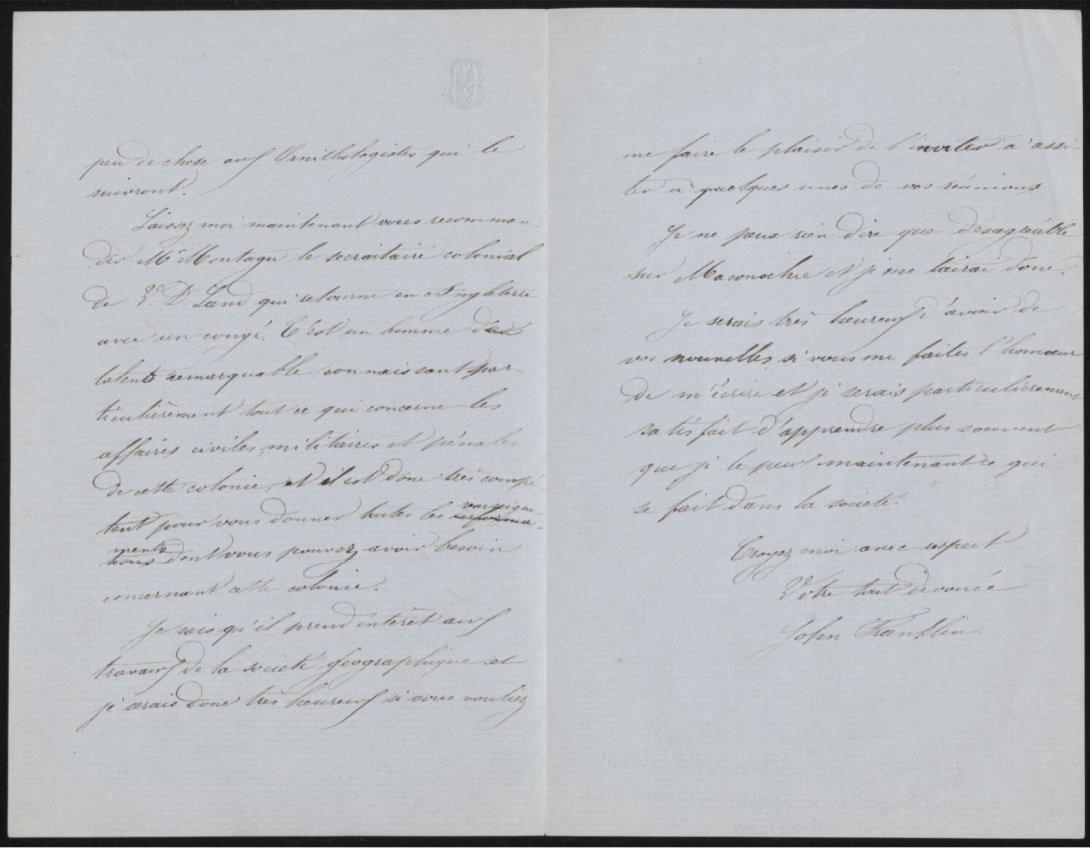 peu de chose aux Ornithologistes qui le
suivront.
Laissez moi maintenant vous recomman-
der Mr Montagu le secrétaire colonial
de V. D. Land qui retourne en Angleterre
avec un congé. C'est un homme de
talent remarquable connaissant par-
ticulièrement tout ce qui concerne les
affaires civiles, militaires et pénales
de cette colonie, et il est donc très compé-
tent pour vous donner toutes les renseigne-
ments dont vous pouvez avoir besoin
concernant cette colonie.
Je sais qu'il prend intérêt aux
travaux de la société géographique et
je serais donc très heureux si vous vouliez
me faire le plaisir de l'inviter à assis
ter à quelques unes de vos réunions
Je ne peux rien dire que désagréable
sur Maconochie et je me tairai donc.
Je serais très heureux d'avoir de
vos nouvelles si vous me faites l'honneur
de m'écrire et je serais particulièrement
satisfait d'apprendre plus souvent
que je le peux maintenant ce qui
se fait dans la société.
Croyez moi avec respect
Votre tout dévouée
John Franklin.